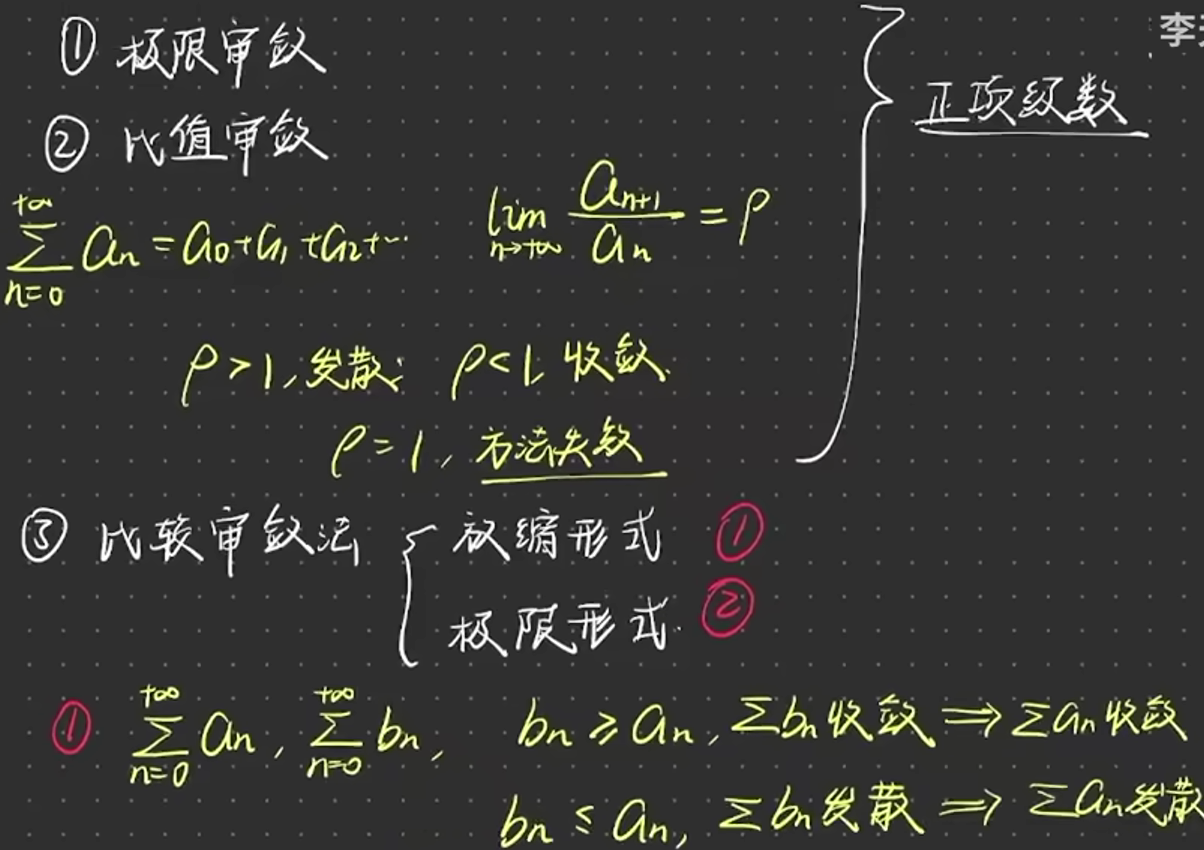 ① 极限审敛
② 比值审敛
正项级数
李
\sum_{n=0}^{+∞} a_n = a_0+a_1+a_2+… \lim_{n→+∞} \frac{a_{n+1}}{a_n} = ρ
ρ>1, 发散; ρ<1, 收敛.
ρ=1, 方法失效
③ 比较审敛法 { 放缩形式 ①
极限形式. ②
① \sum_{n=0}^{+∞} a_n, \sum_{n=0}^{+∞} b_n, b_n ≥ a_n, Σb_n 收敛 ⇒ Σa_n 收敛
b_n ≤ a_n, Σb_n 发散 ⇒ Σa_n 发散